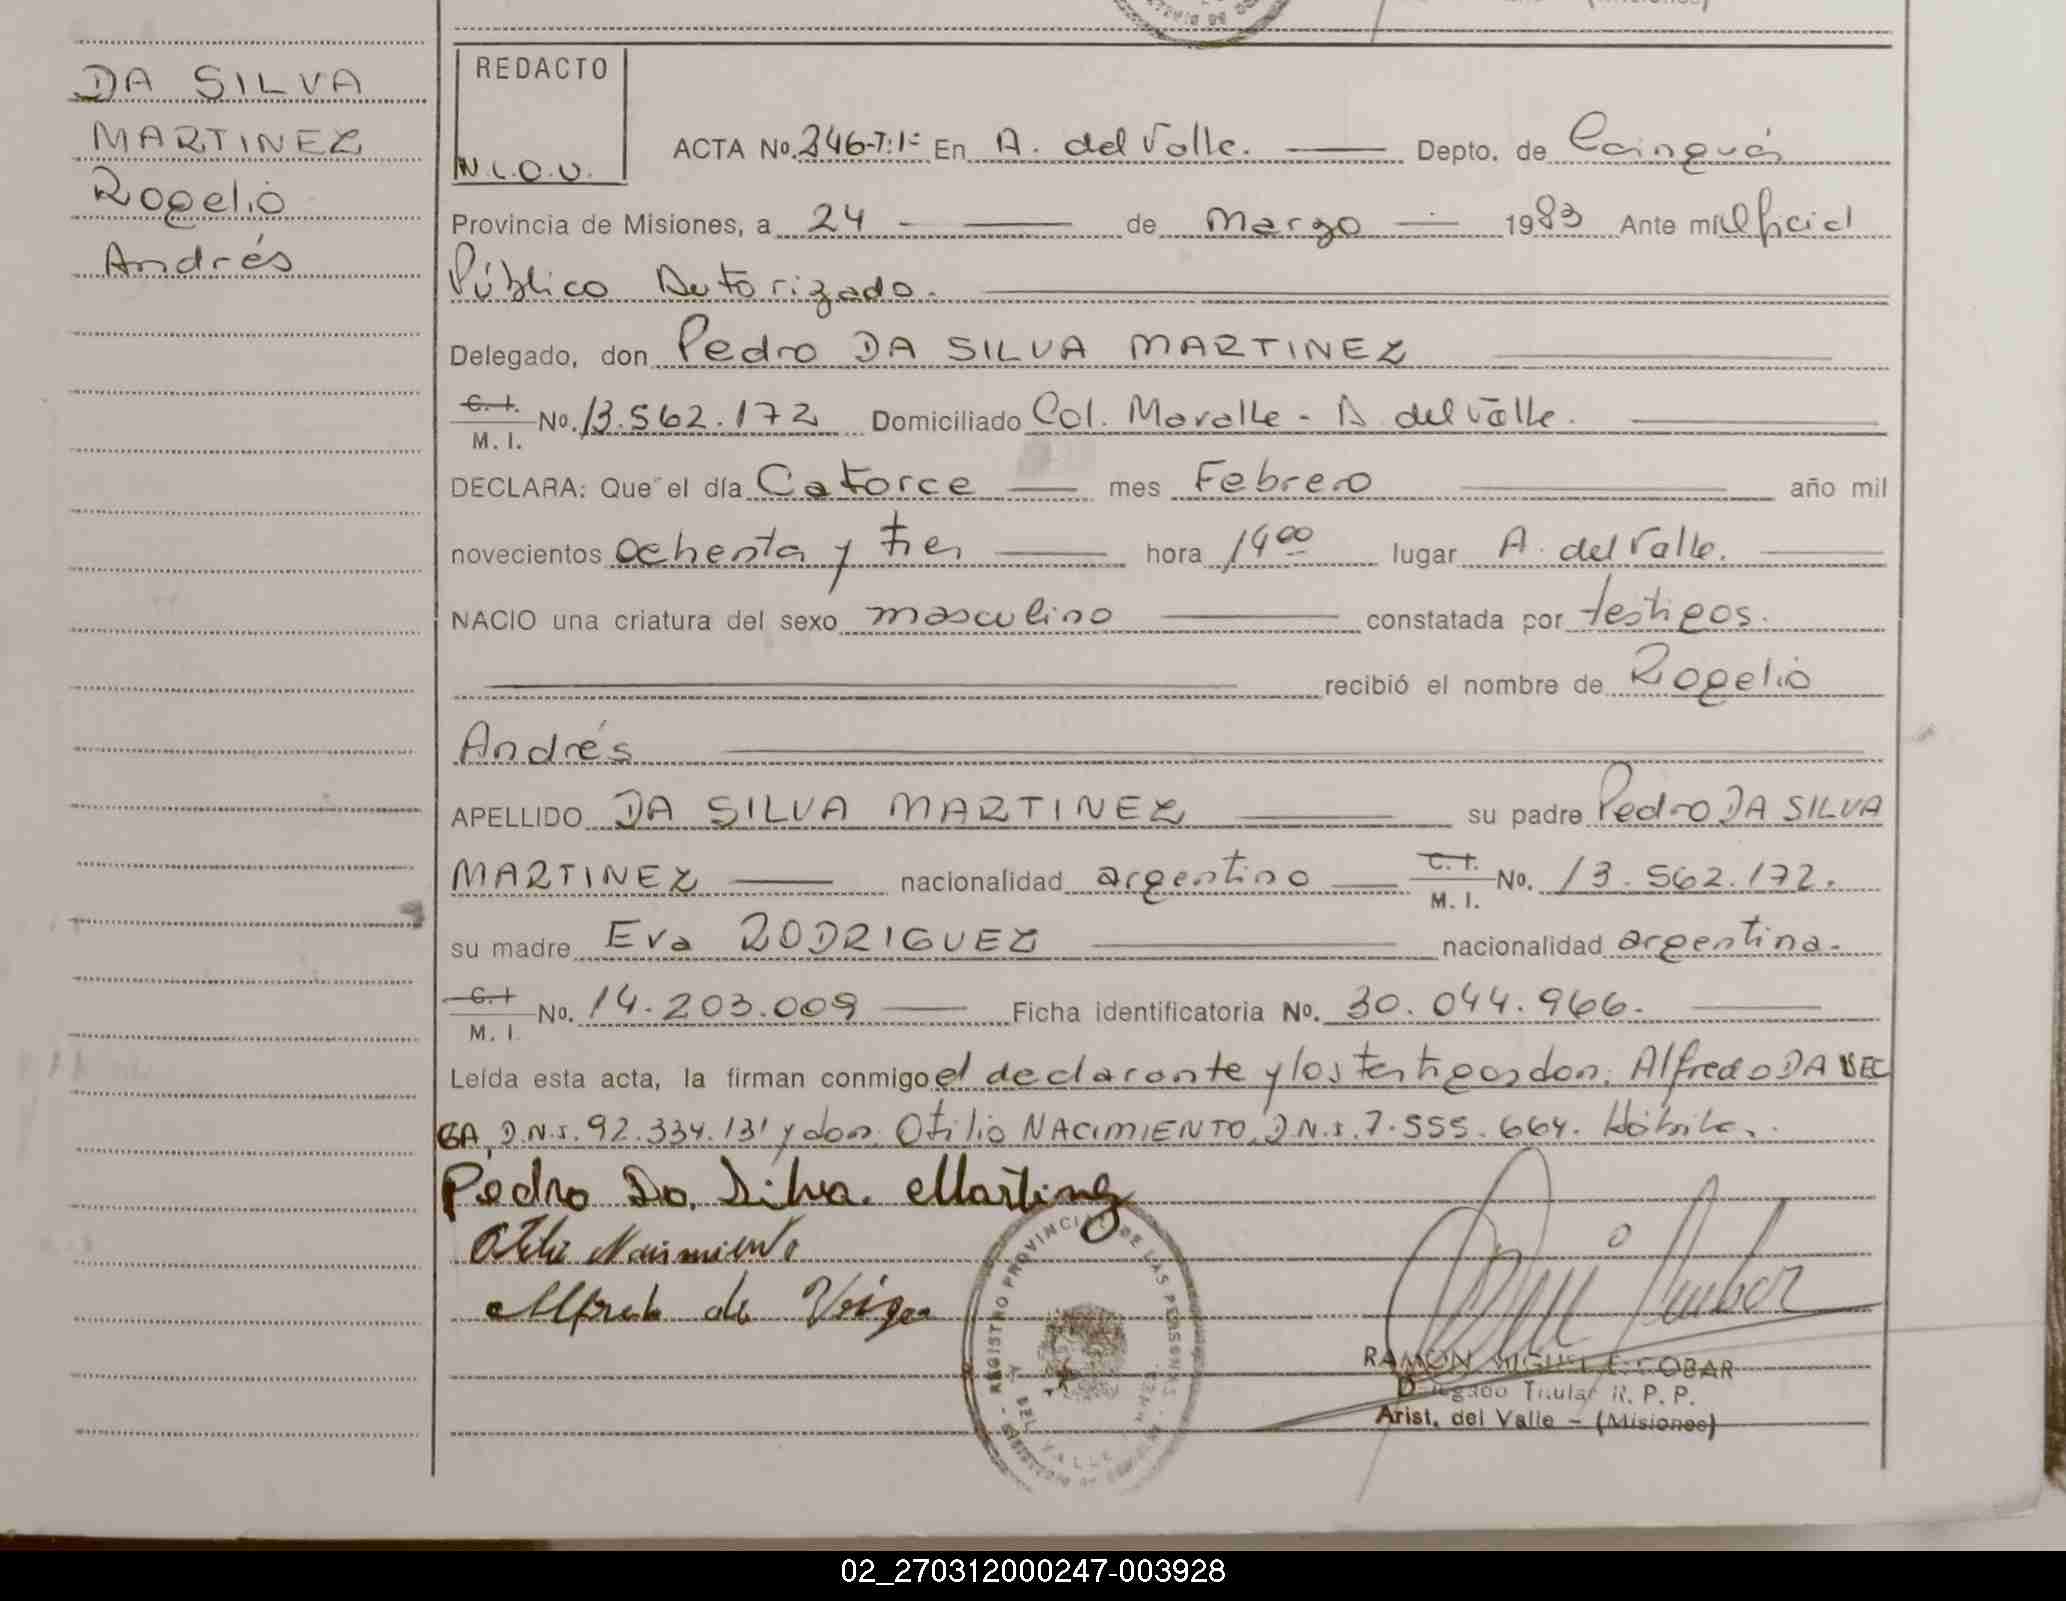 DA SILVA
MARTINEZ
Rogelio
Andrés
REDACTO
N.L.O.V.
ACTA No. 246-T:1º En A. del Valle. Depto. de Cainguás
Provincia de Misiones, a 24 de Marzo 1983 Ante mí Oficial
Público Autorizado.
Delegado, don Pedro DA SILVA MARTINEZ
C. I. M. I. No. 13.562.172 Domiciliado Col. Moralle - A. del Valle.
DECLARA: Que el día Catorce mes Febrero año mil
novecientos ochenta y tres hora 14 00 lugar A. del Valle.
NACIO una criatura del sexo masculino constatada por testigos.
recibió el nombre de Rogelio
Andrés
APELLIDO DA SILVA MARTINEZ su padre Pedro DA SILVA
MARTINEZ nacionalidad argentino C. I. M. I. No. 13.562.172.
su madre Eva RODRIGUEZ nacionalidad argentina.
C. I. M. I. No. 14.203.009 Ficha identificatoria No. 30.044.966.
Leída esta acta, la firman conmigo el declarante y los testigos don. Alfredo DA VEI
GA, D.N.I. 92.334.131 y don. Otilio NACIMIENTO D.N.I. 7.555.664. Hábiles.
Pedro Da Silva Martinez
Otilio Nacimiento
Alfredo da Veiga
REGISTRO PROVINCIAL DE LAS PERSONAS
DEL VALLE
RAMON MIGUEL ESCOBAR
Delegado Titular R. P. P.
Arist. del Valle - (Misiones)
02_270312000247-003928